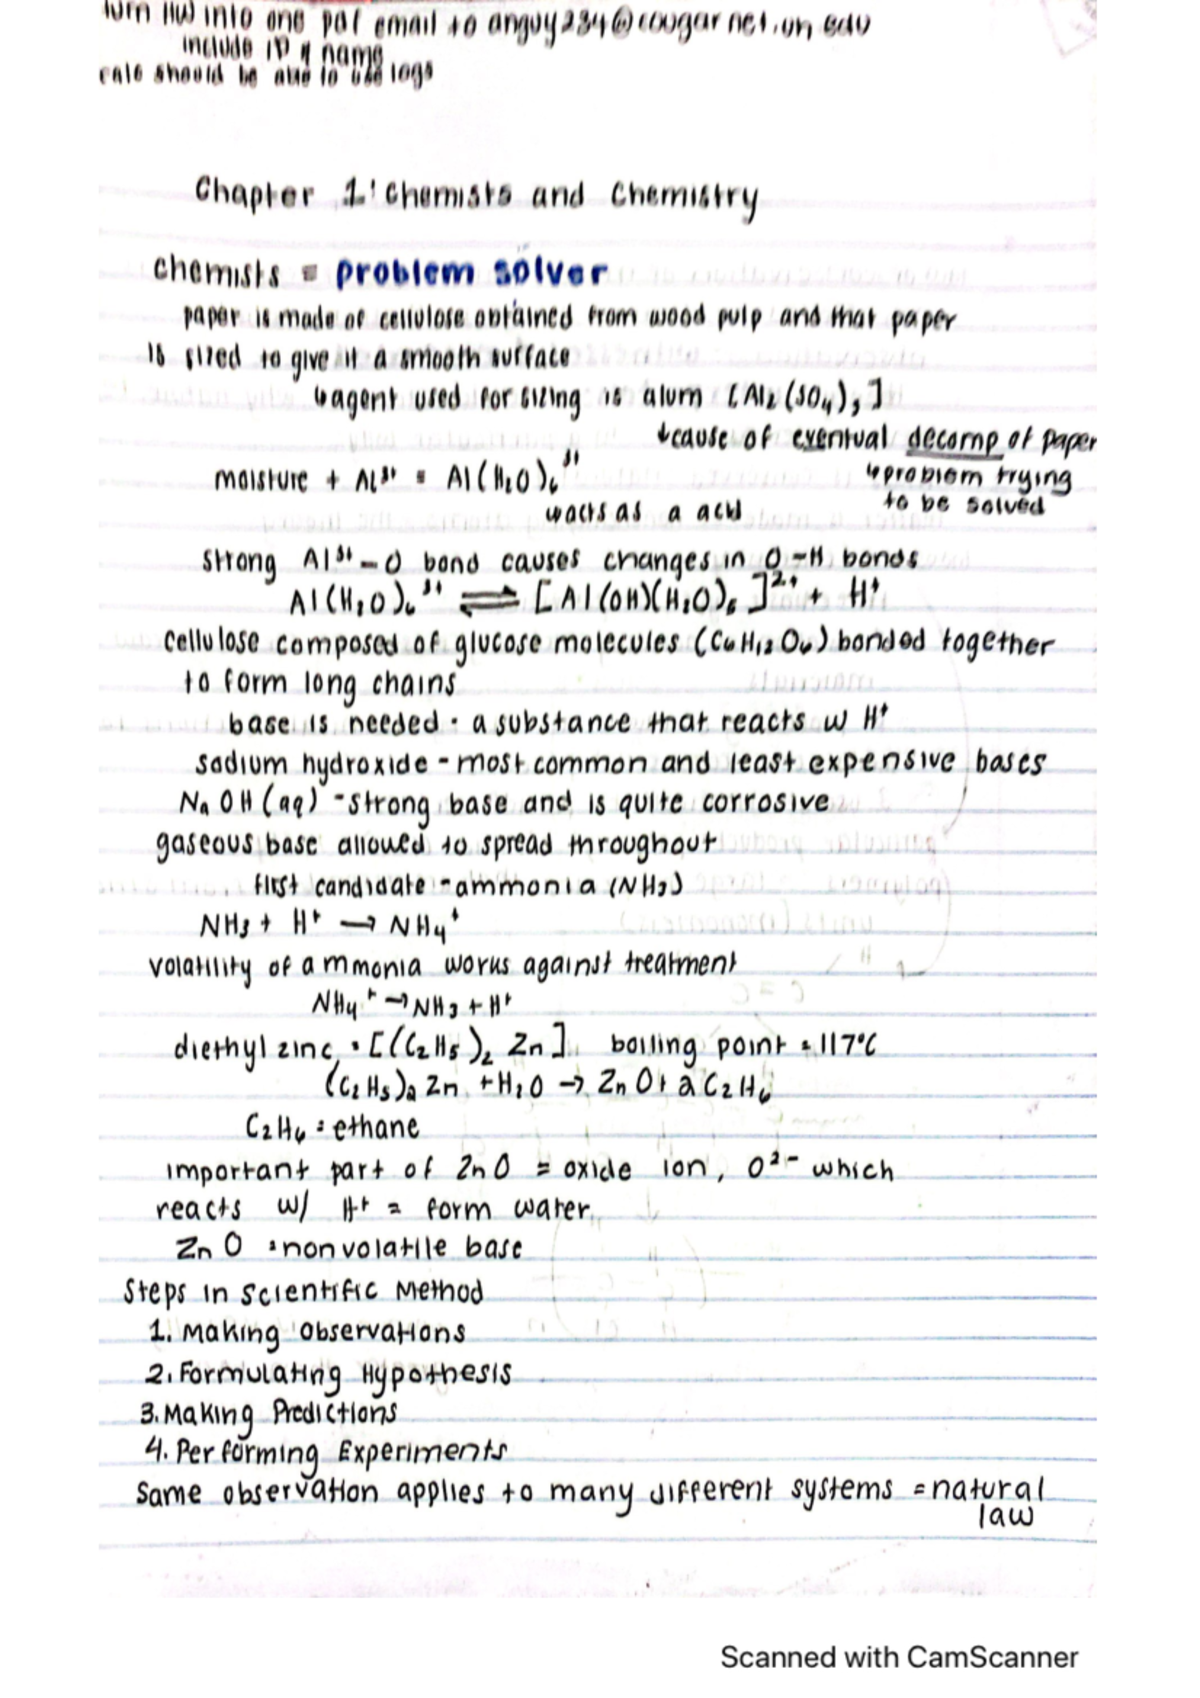 turn HW into one pdf email to anguy284@cougarnet.uh.edu
include ID & name
calc should be able to use logs
Chapter 1: Chemists and Chemistry
chemists = problem solver
paper is made of cellulose obtained from wood pulp and that paper
is sized to give it a smooth surface
↳agent used for sizing is alum [Al₂(SO₄)₃]
↓cause of eventual decomp of paper
↳problem trying
to be solved
moisture + Al³⁺ = Al(H₂O)₆³⁺
↳acts as a acid
strong Al³⁺-O bond causes changes in O-H bonds
Al(H₂O)₆³⁺ ⇌ [Al(OH)(H₂O)₅]²⁺ + H⁺
cellulose composed of glucose molecules (C₆H₁₂O₆) bonded together
to form long chains
base is needed - a substance that reacts w H⁺
sodium hydroxide - most common and least expensive bases
NaOH(aq) - strong base and is quite corrosive
gaseous base allowed to spread throughout
first candidate - ammonia (NH₃)
NH₃ + H⁺ → NH₄⁺
volatility of ammonia works against treatment
NH₄⁺ → NH₃ + H⁺
diethyl zinc = [(C₂H₅)₂ Zn] boiling point = 117°C
(C₂H₅)₂ Zn + H₂O → ZnO + 2C₂H₆
C₂H₆ = ethane
important part of ZnO = oxide ion, O²⁻ which
reacts w/ H⁺ = form water
ZnO = nonvolatile base
Steps in Scientific Method
1. Making Observations
2. Formulating Hypothesis
3. Making Predictions
4. Performing Experiments
Same observation applies to many different systems = natural
law
Scanned with CamScanner